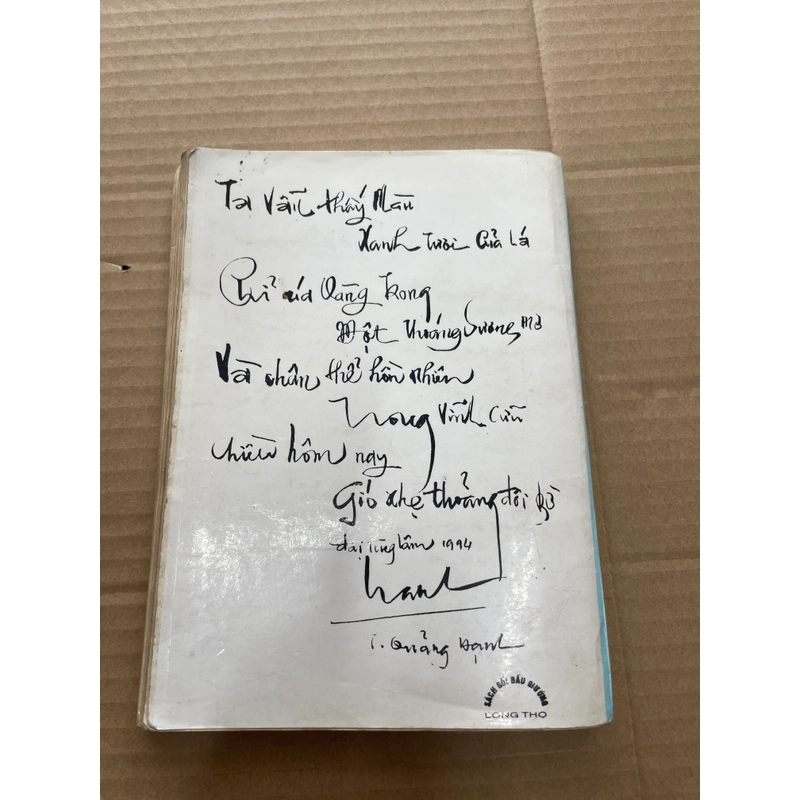 Ta vẫn thấy Màu
Xanh tươi của Lá
Chỉ úa Vàng trong
Một thoáng Sương mờ
Và chân thể hồn nhiên
Trong Vĩnh Cửu
chiều hôm nay
Gió nhẹ thoảng đôi bờ
đại tùng lâm 1994
hạnh
T. Quảng Hạnh
SÁCH GỐI ĐẦU GIƯỜNG
LONG THỌ